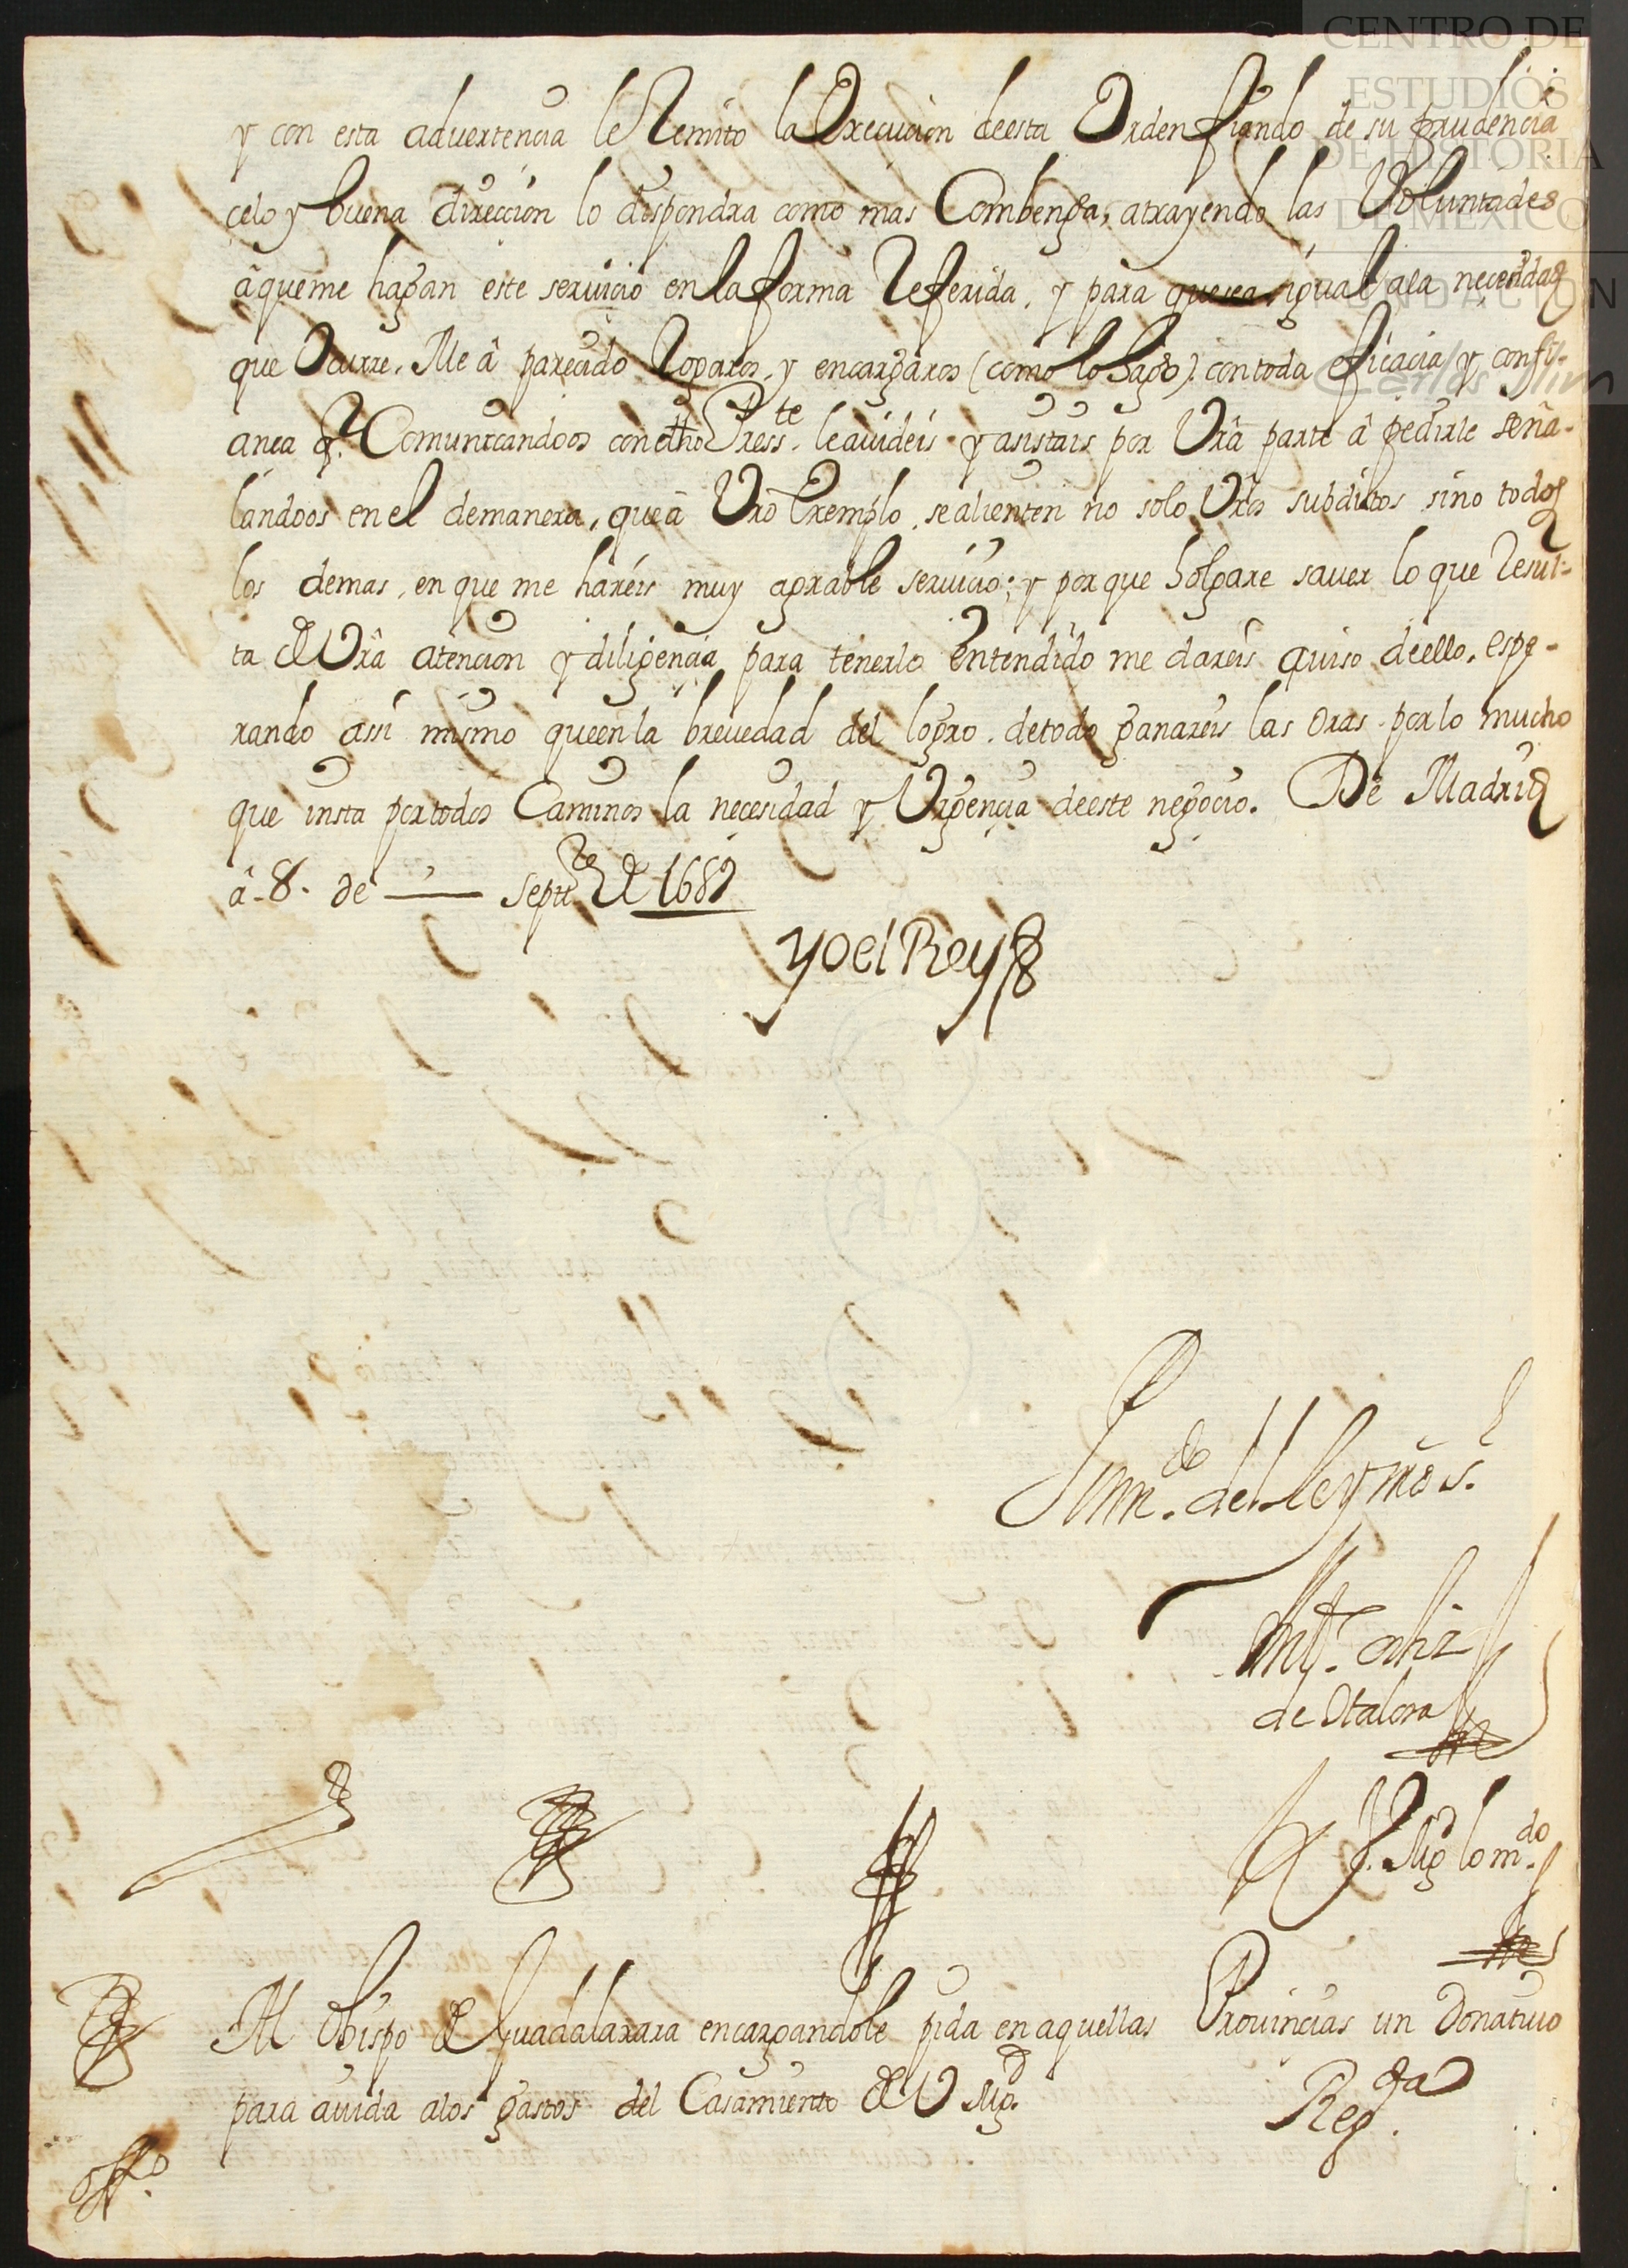 CENTRO DE
ESTUDIOS
DE HISTORIA
DE MEXICO
FUNDACION
Carlos Slim
y con esta aduertencia le Remito la Execucion deesta Orden fiando de su prudencia
celo y buena direccion lo dispondra como mas Combenga, atrayendo las Voluntades
â queme hagan este seruicio en la forma Referida, y para que sea igual ala necesidad
que Ocurre. Me â parecido Rogaros, y encargaros (como lo hago) con toda eficacia y confi-
anca q.e Comunicandoos con dho Press.te le aiudeis y asistais por Vrâ parte â pedirle seña-
landoos en el demanera, que â Vro Exemplo, se alienten no solo Vros subditos sino todos
los demas, en que me hareis muy agrable seruicio; y por que holgare sauer lo que Resul-
ta de Vrâ atencion y diligencia para tenerlo entendido me dareis auiso deello, espe-
rando assi mismo queen la breuedad del logro detodo ganareis las oras por lo mucho
que insta por todos Caminos la necesidad y Urgencia deeste negocio. De Madrid
â 8. de septi.re de 1689
yo el Rey
Por m.do del Rey nro s.r
Ant.o ortiz
de Otalora
Al Obispo de Guadalaxara encargandole pida en aquellas Prouincias un Donatiuo
para aiuda alos gastos del Casamiento de V Mg.d
Reg.da
off.o